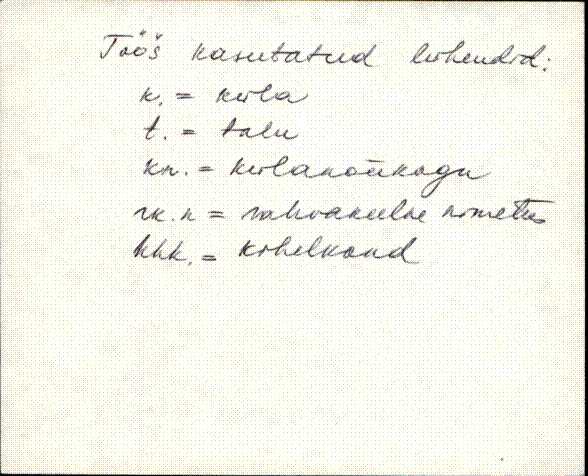 Töös kasutatud lühendid:
k. = küla
t. = talu
kn. = külanõukogu
rk.n = rahvakeelne nimetus
khk. = kihelkond